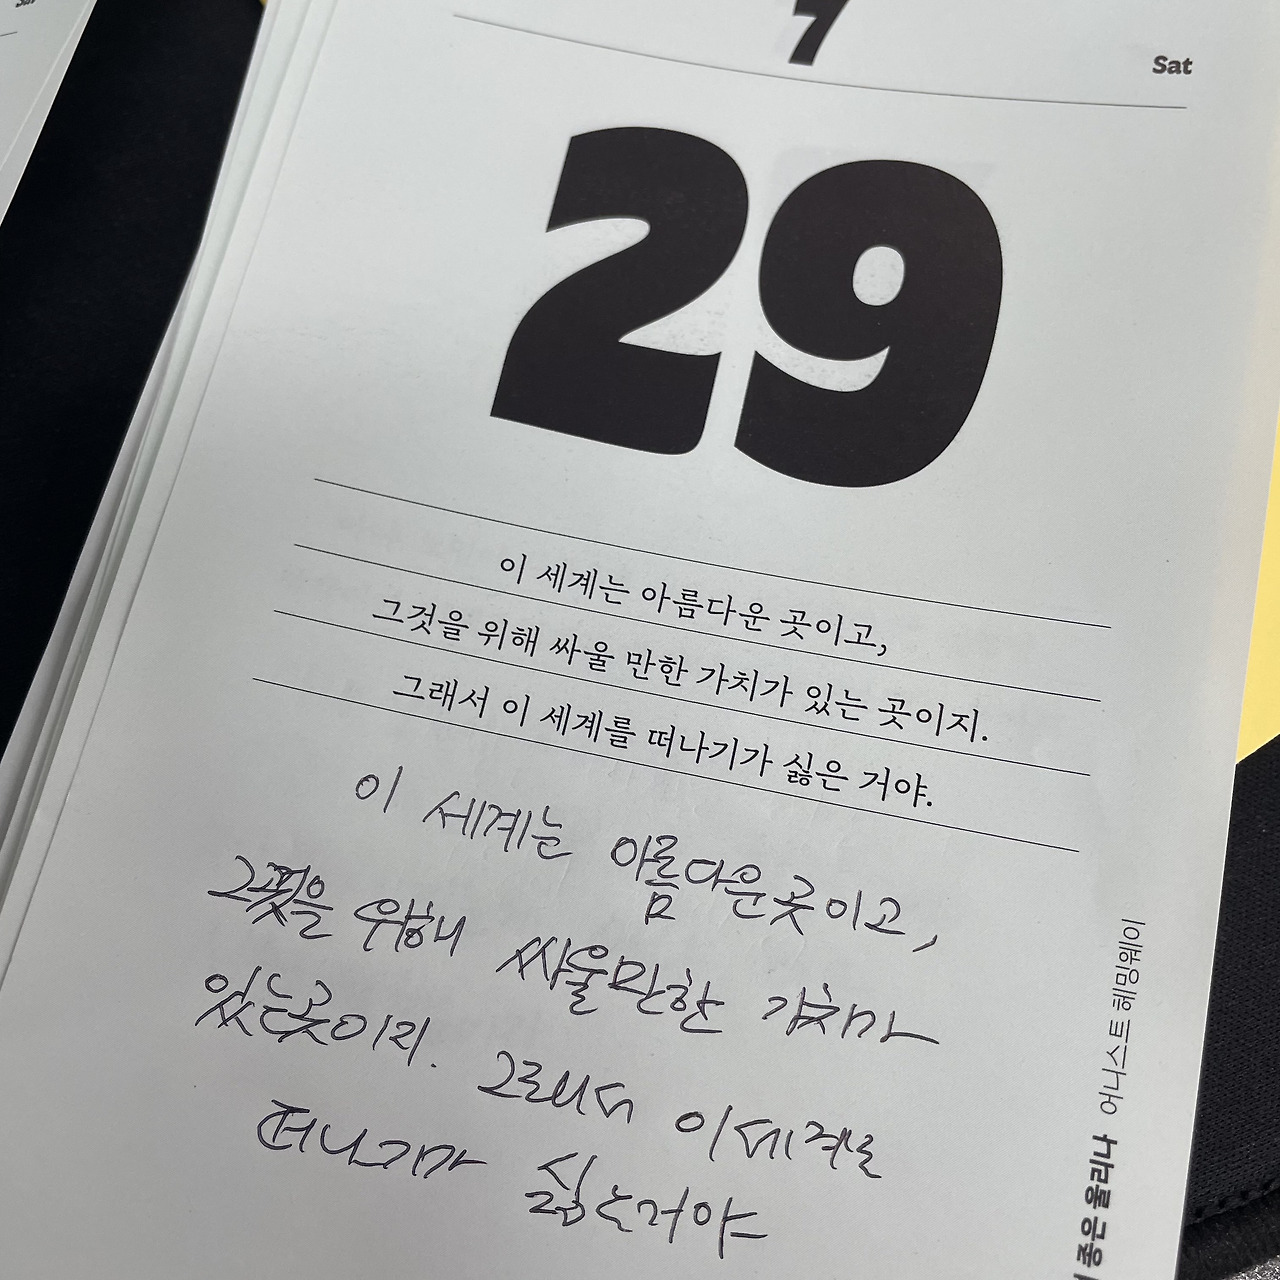 7
Sat
29
이 세계는 아름다운 곳이고,
그것을 위해 싸울 만한 가치가 있는 곳이지.
그래서 이 세계를 떠나기가 싫은 거야.
이 세계는 아름다운곳이고,
그것을 위해 싸울만한 가치가
있는곳이지. 그래서 이세계를
떠나기가 싫은거야
좋은 울리나 어니스트 헤밍웨이